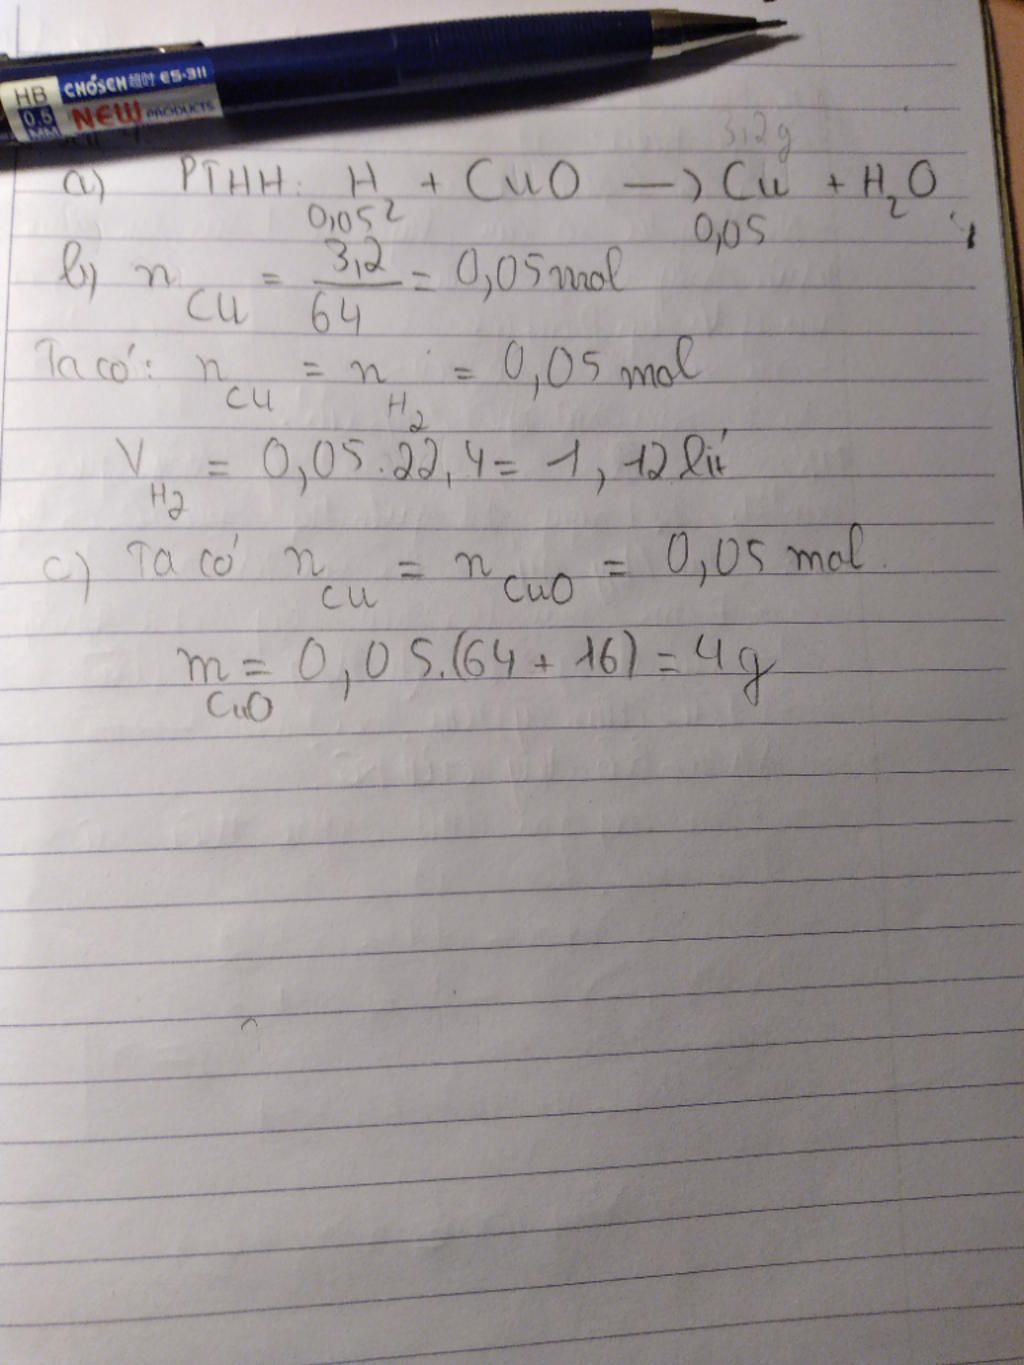 HB CHOSCH超时 ES-311
0.5 MM NEW PRODUCTS
3,2g
a) PTHH: H₂ + CuO → Cu + H₂O
0,05 0,05
b) n Cu = 3,2/64 = 0,05 mol
Ta có: n Cu = n H₂ = 0,05 mol
V H₂ = 0,05.22,4 = 1,12 lít
c) Ta có n Cu = n CuO = 0,05 mol.
m CuO = 0,05.(64 + 16) = 4g